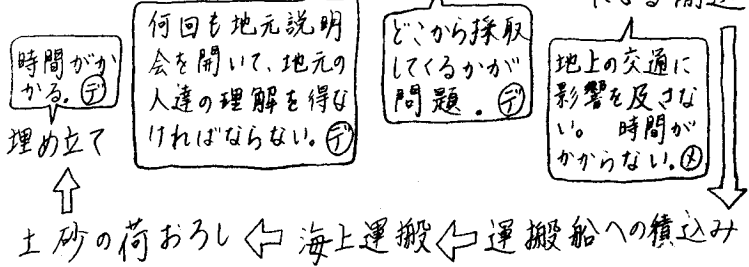 時間がか
かる。デ
埋め立て
何回も地元説明
会を開いて、地元の
人達の理解を得な
ければならない。デ
どこから採取
してくるかが
問題。デ
地上の交通に
影響を及さな
い。 時間が
かからない。メ
土砂の荷おろし ⇦ 海上運搬 ⇦ 運搬船への積込み